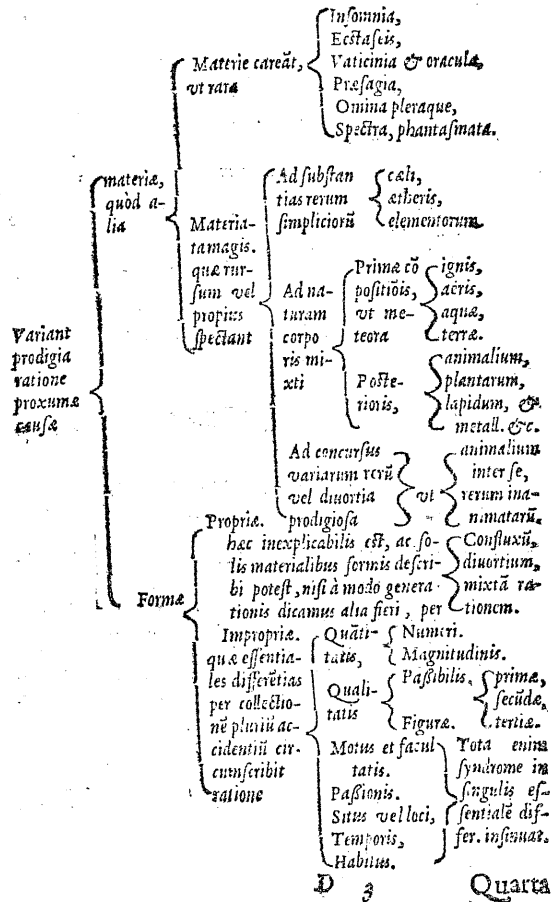 Variant
prodigia
ratione
proxumæ
causæ
materiæ,
quòd a-
lia
Matterie careāt,
vt rara
Insomnia,
Ecstaseis,
Vaticinia & oracula,
Præsagia,
Omina pleraque,
Spectra, phantasmata.
Materia-
ta magis.
quæ rur-
sum vel
propius
spectant
Ad substan
tias rerum
simpliciorū
cæli,
ætheris,
elementorum
Ad na-
turam
corpo
ris mi-
xti
Primæ cō
positiōis,
vt me-
teora
ignis,
aëris,
aquæ,
terræ.
Poste-
rioris,
animalium,
plantarum,
lapidum, &
metall. &c.
Ad concursus
variarum rerū
vel diuortia
prodigiosa
vt
animalium
inter se,
rerum ina-
nimatarū.
Formæ
Propriæ.
hæc inexplicabilis est, ac so-
lis materialibus formis descri-
bi potest, nisi à modo genera-
tionis dicamus alia fieri, per
Confluxū,
diuortium,
mixtā ra-
tionem.
Impropriæ.
quæ essentia-
les differētias
per collectio-
nē pluriū ac-
cidentiū cir-
cumscribit
ratione
Quāti-
tatis,
Numeri.
Magnitudinis.
Quali-
tatis
Paßibilis,
primæ,
secūdæ,
tertiæ.
Figuræ.
Motus et facul
tatis.
Paßionis.
Situs vel loci,
Temporis,
Habitus.
Tota enim
syndrome in
singulis es-
sentialē dif-
fer. insinuat.
D 3 Quarta